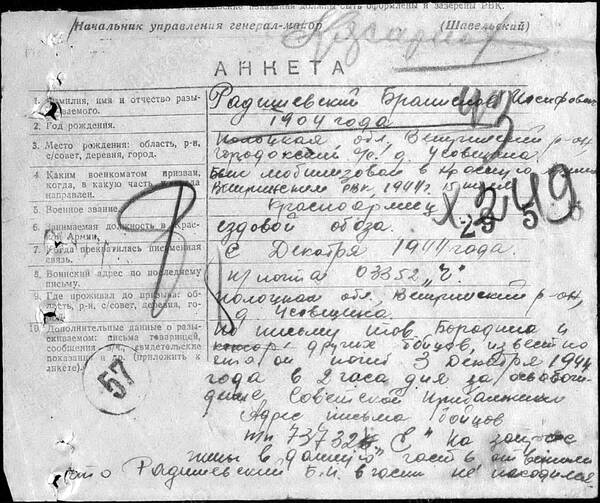 показания должны быть оформлены и заверены РВК.
Начальник управления генерал-майор (Шавельский)
АНКЕТА
1. Фамилия, имя и отчество разыскиваемого.
Радишевский Бранислав Иосифович
2. Год рождения.
1904 года
3. Место рождения: область, р-н, с/совет, деревня, город.
Полоцкая обл, Ветринский р-он,
Городокский с/с. д. Усовщина.
4. Каким военкоматом призван, когда, в какую часть направлен.
Был мобилизован в Красную
Ветринским РВК 1944 г.
5. Военное звание.
Красноармеец
6. Занимаемая должность в Красной Армии.
ездовой обоза.
7. Когда прекратилась письменная связь.
С Декабря 1944 года.
8. Воинский адрес по последнему письму.
п/почта 03352 „
9. Где проживал до призыва: область, р-н, с/совет, деревня, го-
Полоцкая обл, Ветринский р-он,
д Усовщина.
10. Дополнительные данные о разыскиваемом: письма товарищей, сообщения свидетельские показания и др. (приложить к анкете).
по письму тов. Бородина и
других бойцов, известно
что он погиб 3 Декабря 1944
года в 2 часа дня за освобождение Советской Прибалтики
Адрес письма бойцов
пп 73732 „ На запрос
жены в данную часть ответили
что Радишевский Б.И. в части не находился
249
57